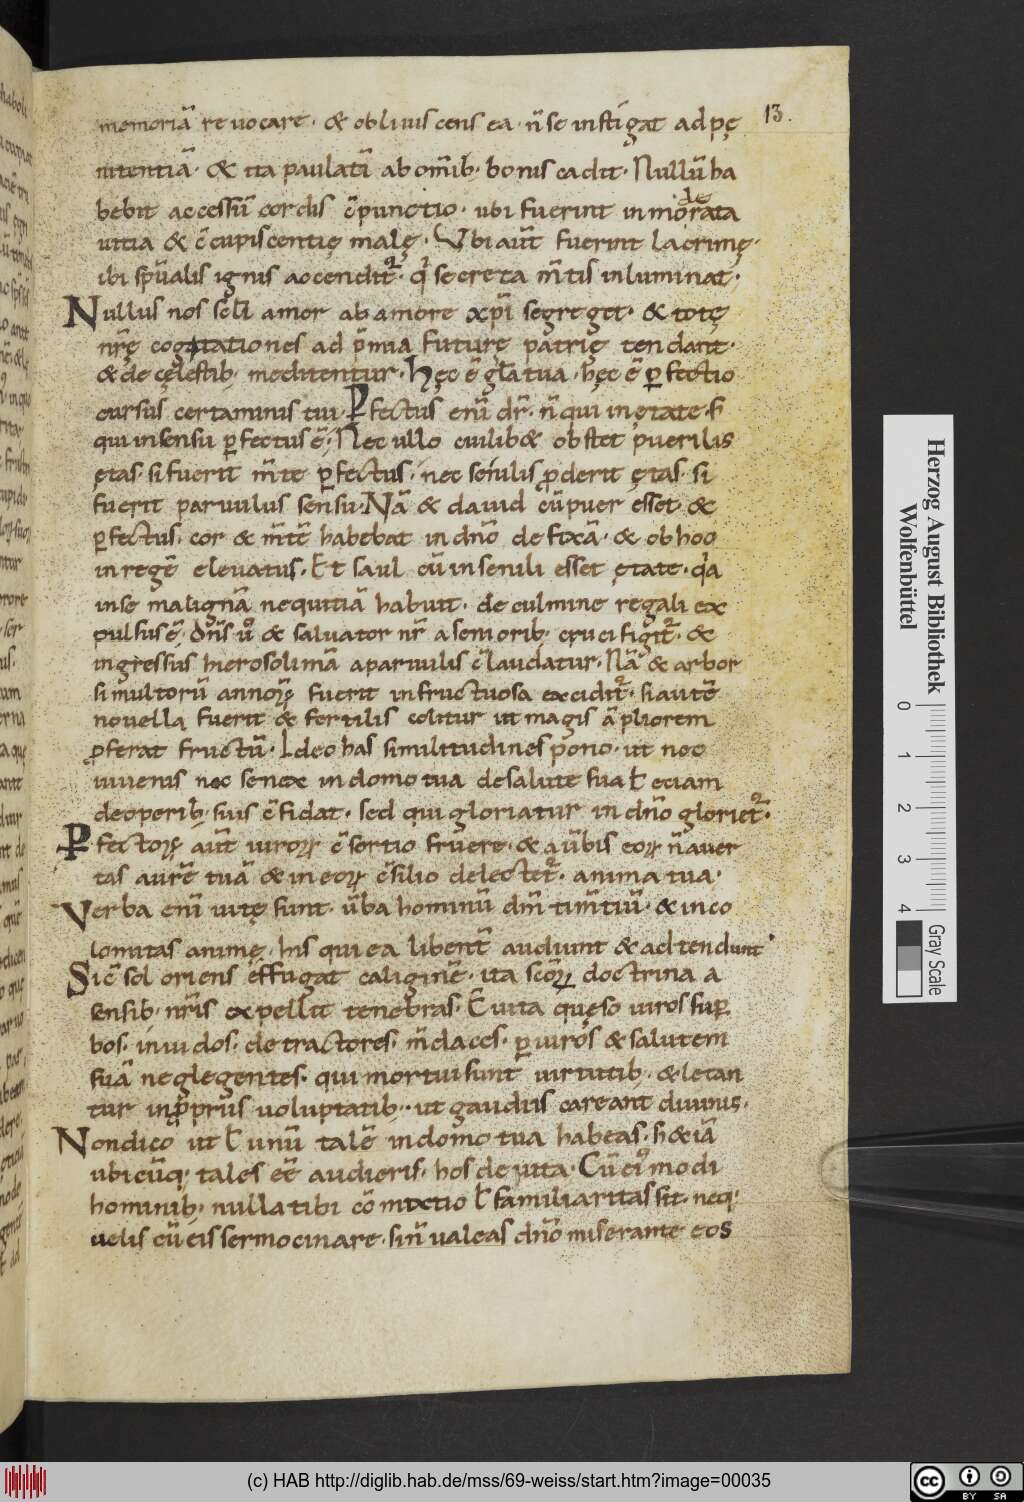 13.
memoriā reuocare· & obliuiscens ea· n̄ se instigat ad pę
nitentiā· & ita paulatī ab om̄ib; bonis cadit· Nullū ha
bebit accessū cordis c̄punctio· ubi fuerint in mo de rata
uitia & c̄cupiscentię malę· Vbi aūt fuerint lacrimę·
ibi sp̄ualis ignis accendit̄· q̄ secreta m̄tis inluminat·
Nullus nos sc̄li amor ab amore xp̄i segreget· & totę
nr̄ę cogitationes ad p̄mia futurę patrię tendant·
& de cęlestib; meditentur· Hęc ē gl̄a tua· hęc ē ꝑfectio
cursus certaminis tui· Ꝑfectus enī dr̄· n̄ qui in ętate· s̄
qui in sensu ꝑfectus ē; Nec ullo cuilib& obstet puerilis
ętas· si fuerit m̄te ꝑfectus· nec senilis ꝓderit ętas· si
fuerit paruulus sensu· Nā & dauid cū puer esset· &
ꝑfectus· cor & m̄tē habebat in dn̄o defixā· & ob hoc
in regē eleuatus· Et saul cū in senili esset ętate· q̄a
in se malignā nequitiā habuit· de culmine regali ex
pulsus ē· dn̄s u̅o & saluator nr̄ a seniorib; crucifigit̄· &
ingressus hierosolimā a paruulis c̄laudatur· Nā & arbor
si multorū annoꝝ fuerit infructuosa exciditꝰ· si autē
nouella fuerit & fertilis colitur ut magis āpliorem
ꝓferat fructū· Ideo has similitudines pono· ut nec
iuuenis nec senex in domo tua de salute sua ł eciam
de operib; suis c̄fidat· sed qui gloriatur in dn̄o glorietꝰ·
Ꝑfectoꝝ aūt uiroꝝ c̄sortio fruere· & a ūbis eoꝝ n̄ auer
tas aurē tuā & in eoꝝ c̄silio delectetꝰ· anima tua·
Verba enī uitę sunt· ūba hominū dm̄ tim̄tiū· & inco
lomitas animę· his qui ea libent̄ audiunt & ad tendunt·
Sic̄ sol oriens effugat caliginē· ita sc̄oꝝ doctrina a
sensib; nr̄is expellit tenebras· Euita quęso uiros suꝑ
bos· inuidos· detractores· m̄daces· ꝑiuros & salutem
suā neglegentes· qui mortui sunt uirtutib; & letan
tur in ꝓpriis uoluptatib;· ut gaudiis careant diuinis·
Non dico ut ł unū talē in domo tua habeas· s̄ &iā
ubicūq; tales eē audieris· hos deuita· Cū ei᷒modi
hominib; nulla tibi cōmixtio ł familiaritas sit· neq;
uelis cū eis sermocinare· sin̄ ualeas dn̄o miserante eos
Herzog August Bibliothek
Wolfenbüttel
0 1 2 3 4
Gray Scale
(c) HAB http://diglib.hab.de/mss/69-weiss/start.htm?image=00035
cc BY SA